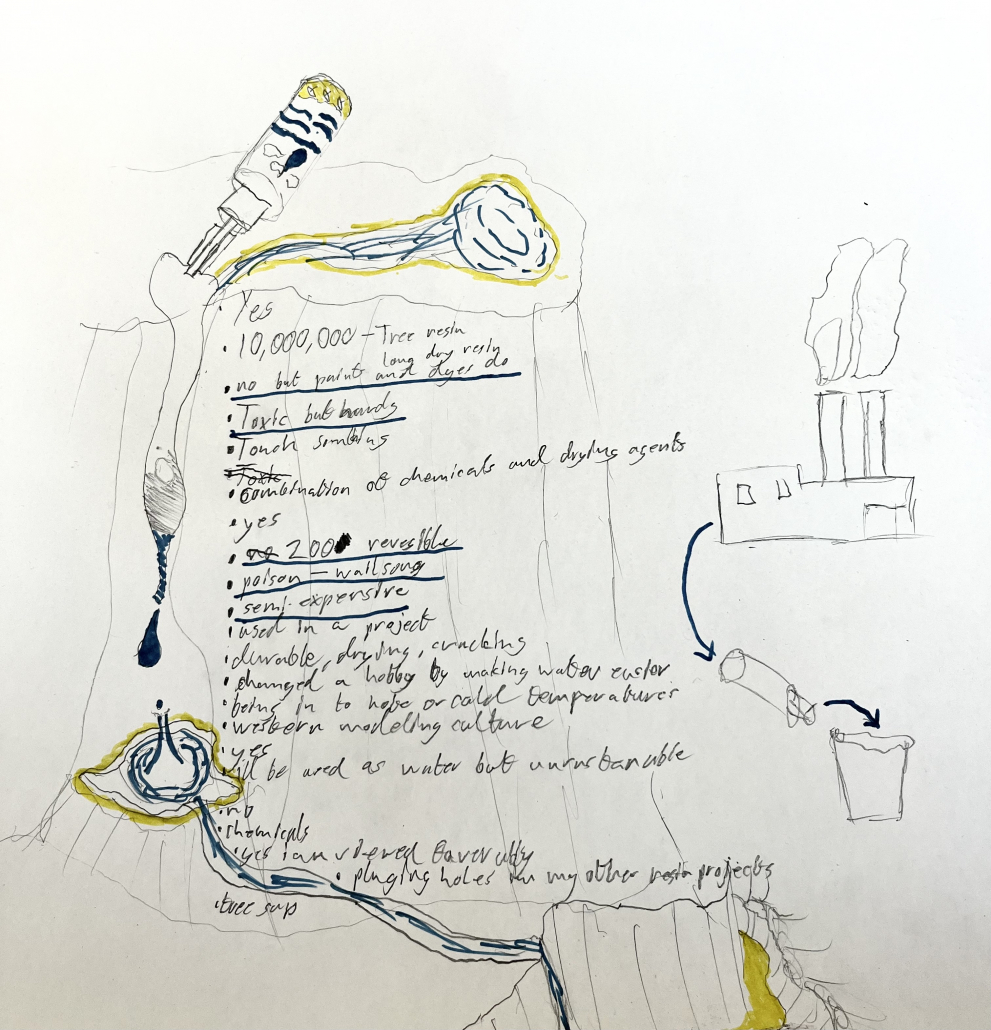 Yes
10,000,000 - Tree resin
long dry resin
no but paints and dyes do
Toxic but hands
Touch
Toxic
Combination of chemicals and drying agents
yes
no 200 revesible
poison -
semi-expensive
used in a project
durable, drying, cracking
changed a hobby by making water easier
being in to hote or cold temperatures
western modeling culture
yes
will be used as water but
no
chemicals
yes
pluging holes in my other resin projects
tree sap